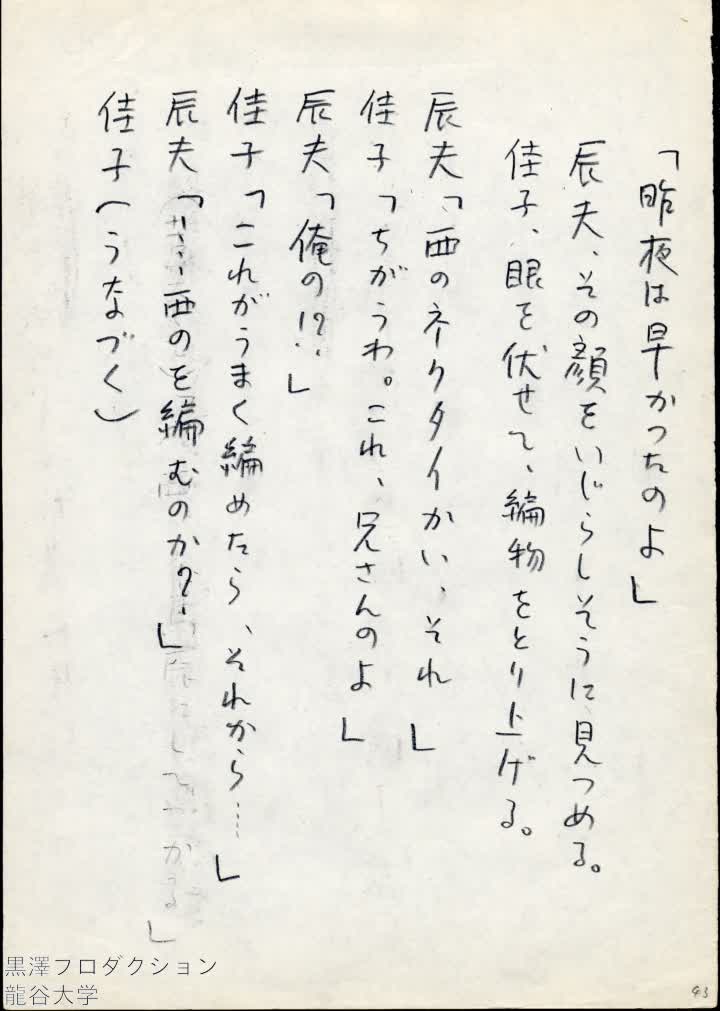 「昨夜は早かつたのよ」
辰夫、その顔をいじらしそうに見つめる。
佳子、眼を伏せて、編物をとり上げる。
辰夫「西のネクタイかい、それ」
佳子「ちがうわ。これ、兄さんのよ」
辰夫「俺の!?‥」
佳子「これがうまく編めたら、それから……」
辰夫「‥‥西のを編むのか?‥」
佳子(うなづく)
43
黒澤プロダクション
龍谷大学